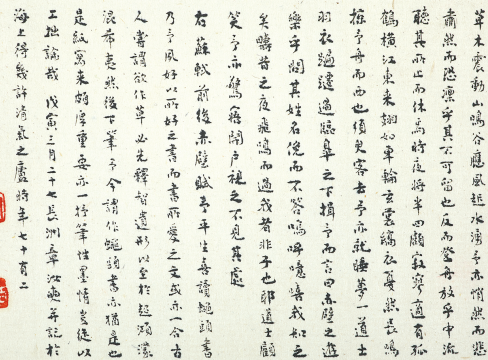 草木震動山鳴谷應風起水湧予亦悄然而悲
肅然而恐凜乎其不可留也反而登舟放乎中流
聽其所止而休焉時夜將半四顧寂寥適有孤
鶴橫江東來翅如車輪玄裳縞衣戛然長鳴
掠予舟而西也須臾客去予亦就睡夢一道士
羽衣蹁躚過臨皋之下揖予而言曰赤壁之遊
樂乎問其姓名俛而不答嗚呼噫嘻我知之
矣疇昔之夜飛鳴而過我者非子也耶道士顧
笑予亦驚寤開戶視之不見其處
右蘇軾前後赤壁賦予平生喜讀蠅頭書
乃予夙好以所好之書而書所愛之文或亦一合古
人嘗謂欲作草必先釋智遺形以至於超鴻濛
混希夷然後下筆予今謂作蠅頭書亦猶是也
是紙寫來頗厚重要亦一時筆性墨情豈徒以
工拙論哉戊寅三月二十七長洲章汝奭并記於
海上得幾許清氣之廬時年七十有二